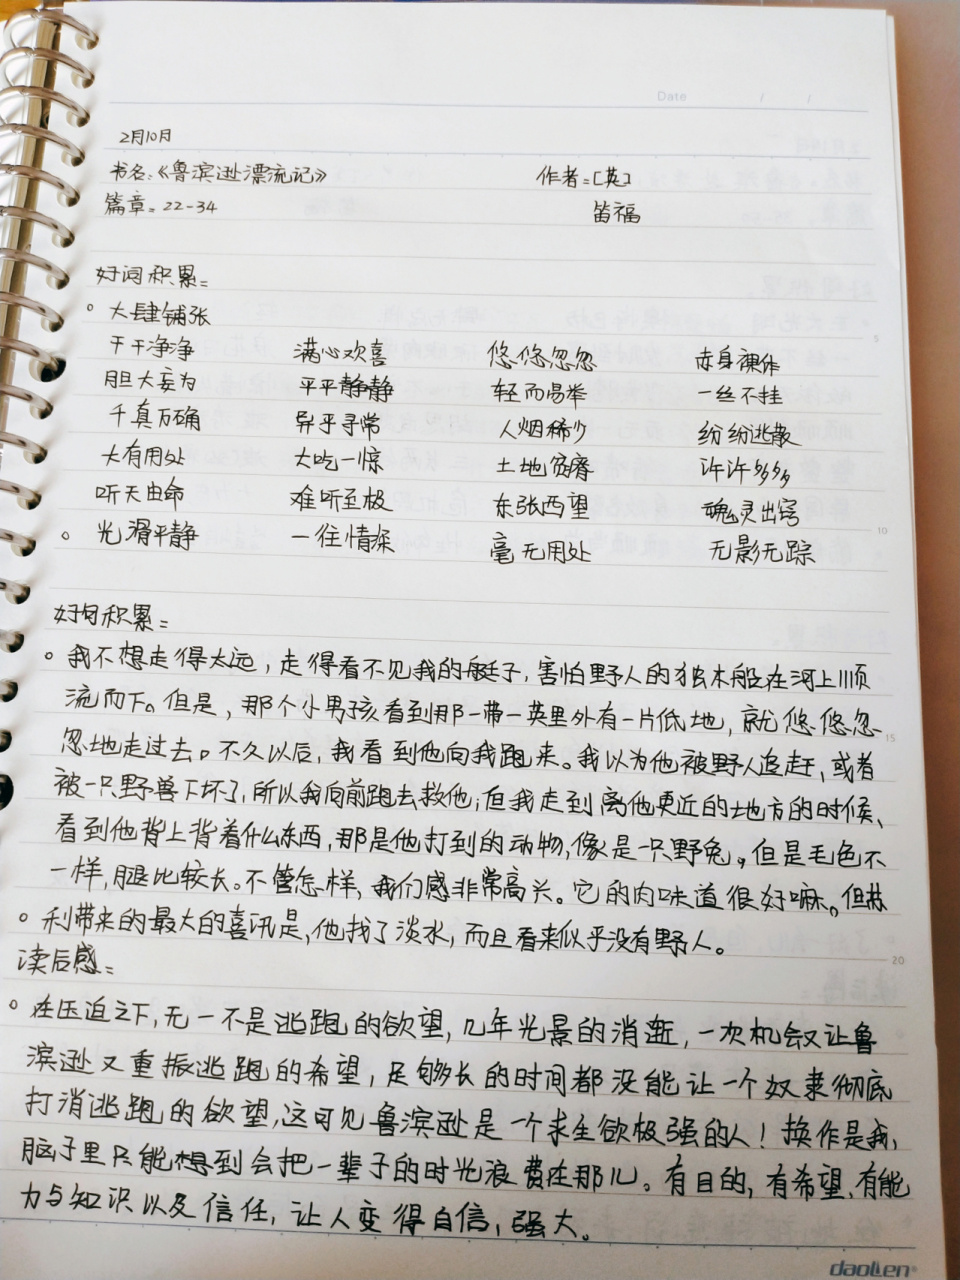 Date / /
2月10日
书名:《鲁滨逊漂流记》 作者:[英]
篇章:22-34 笛福
好词积累:
大肆铺张
干干净净 满心欢喜 悠悠忽忽 赤身裸作
胆大妄为 平平静静 轻而易举 一丝不挂
千真万确 异乎寻常 人烟稀少 纷纷逃散
大有用处 大吃一惊 土地贫瘠 许许多多
听天由命 难听至极 东张西望 魂灵出窍
光滑平静 一往情深 毫无用处 无影无踪
好句积累:
我不想走得太远,走得看不见我的艇子,害怕野人的独木船在河上顺
流而下。但是,那个小男孩看到那一带一英里外有一片低地,就悠悠忽
忽地走过去。不久以后,我看到他向我跑来。我以为他被野人追赶,或者
被一只野兽下坏了,所以我向前跑去救他;但我走到离他更近的地方的时候、
看到他背上背着什么东西,那是他打到的动物,像是一只野兔。但是毛色不
一样,腿比较长。不管怎样,我们感非常高兴。它的肉味道很好嘛。但苏
利带来的最大的喜讯是,他找了淡水,而且看来似乎没有野人。
读后感:
在压迫之下,无一不是逃跑的欲望,几年光景的消逝,一次机会又让鲁
滨逊又重振逃跑的希望,足够长的时间都没能让一个奴隶彻底
打消逃跑的欲望,这可见鲁滨逊是一个求生欲极强的人!换作是我,
脑子里只能想到会把一辈子的时光浪费在那儿。有目的,有希望,有能
力与知识以及信任,让人变得自信,强大。
5
10
15
20
daolen